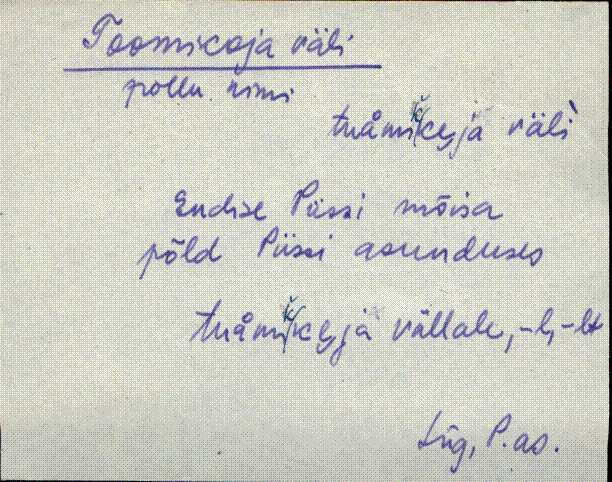 Toomikoja väli
põllu nimi
väli
Endise Püssi mõisa
põld Püssi asunduses
vällale, -l, -lt
Lüg, P. as.